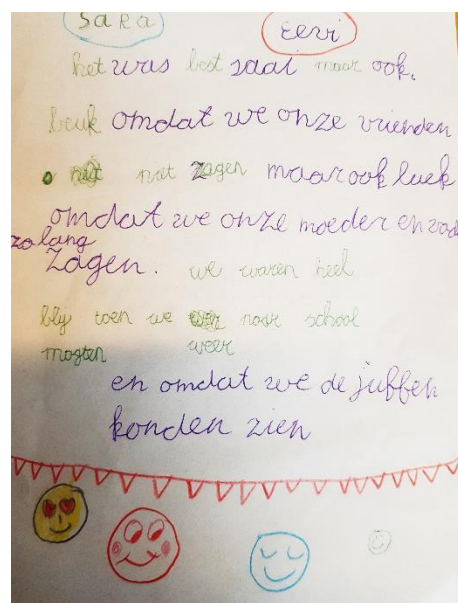 Sara Eevi
het was best saai maar ook.
beuk omdat we onze vrienden
niet zagen maar ook luek
omdat we onze moeder en vade
zo lang
zagen. we waren heel
blij toen we naar school
mogten weer
en omdat we de juffen
konden zien